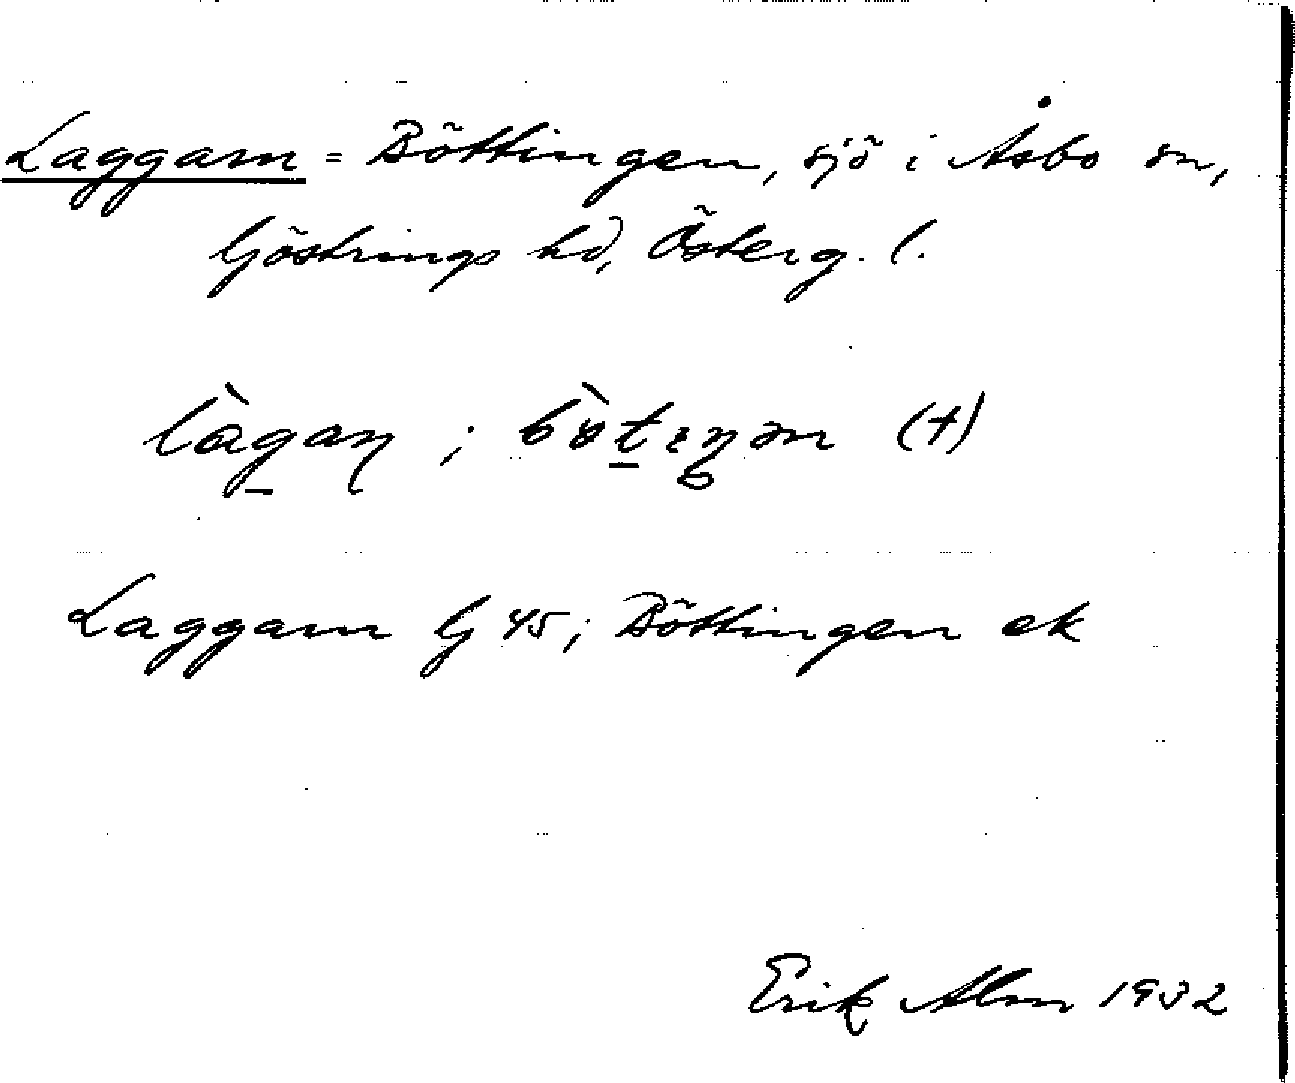 Laggarn = Böttingen, sjö i Åsbo sn,
Göstrings hd, Österg. l.
làgaɳ ; bö̀tıŋən (+)
Laggarn G 45; Böttingen ek
Erik Alm 1932